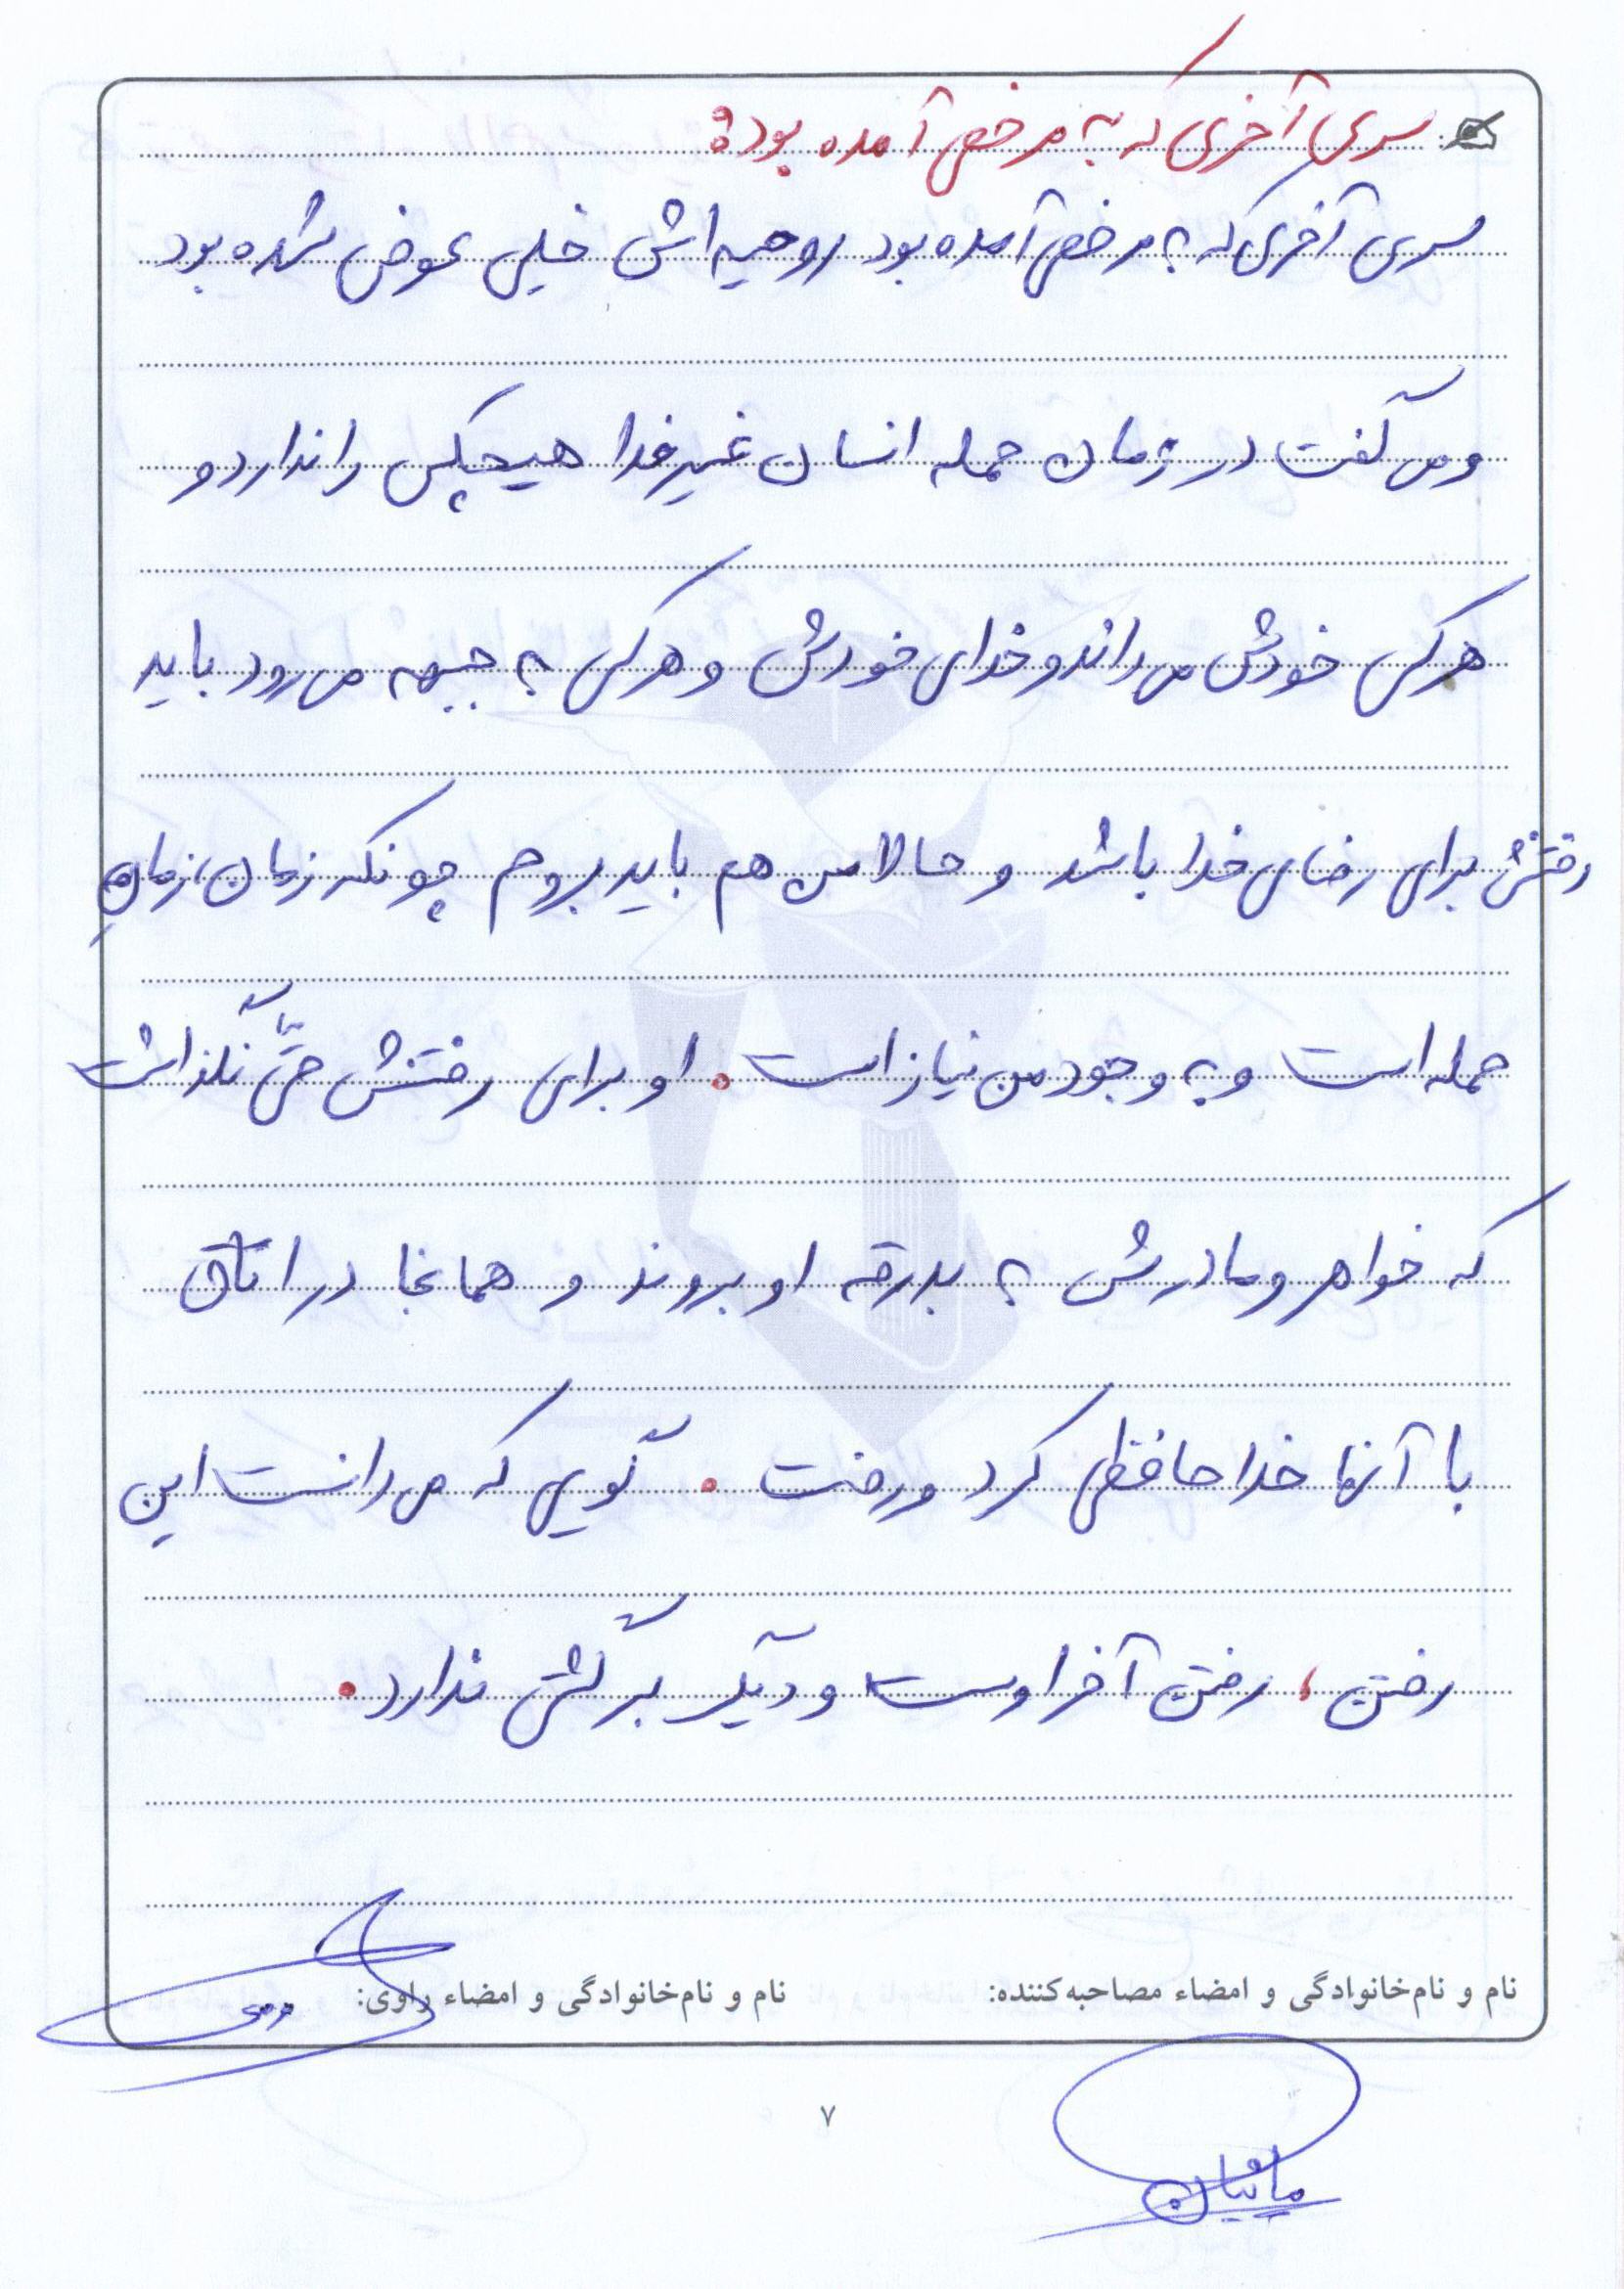 سری آخری که به مرخصی آمده بود:
سری آخری که به مرخصی آمده بود روحیه اش خیلی عوض شده بود
و می گفت در زمان حمله انسان غیر خدا هیچکس را ندارد و
هر کس خودش می داند و خدای خودش و هر کس به جبهه می رود باید
رفتنش برای رضای خدا باشد و حالا من هم باید بروم چونکه زمان، زمانِ
حمله است و به وجود من نیاز است. او برای رفتنش حتّی نگذاشت
که خواهر و مادرش به بدرقه او بروند و همانجا در اتاق
با آنها خداحافظی کرد و رفت. گویی که می دانست این
رفتن، رفتن آخر اوست و دیگر برگشتی ندارد.
نام و نام‌خانوادگی و امضاء مصاحبه‌کننده: نام و نام‌خانوادگی و امضاء راوی:
۷